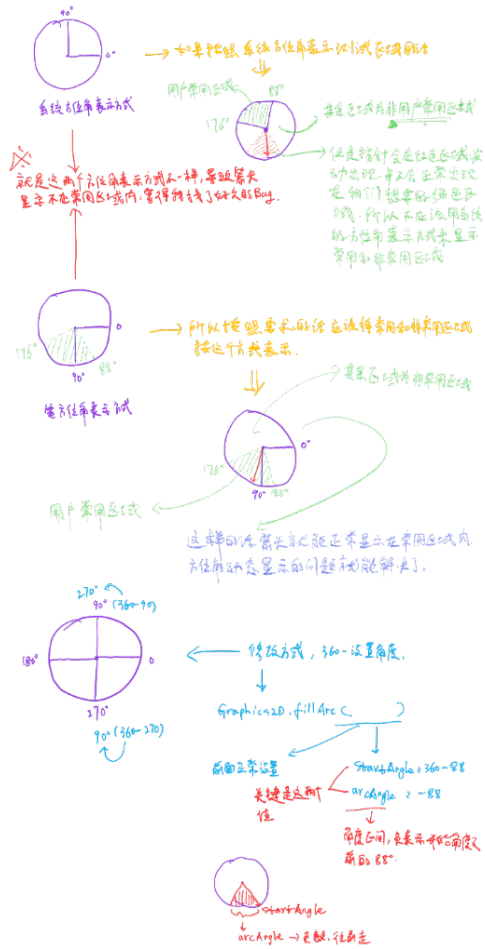 90°
0°
系统方位角表示方式
如果按照系统方位角表示方式区域的话
用户常用区域
88°
176°
其余区域为非用户常用区域
但是指针会在红色区域波
动出现,并不会正常出现
在我们想要的绿色区
域。所以不应该用系统
的方位角表示方式来显示
常用和非常用区域
就是这两个方位角表示方式不一样,导致箭头
显示不在常用区域内,害得我找了好久的Bug.
0
176°
88°
90°
笔方位角表示方式
所以按照要求的话应该将常用和非常用区域
按这个方式表示.
其余区域为非常用区域
0°
176°
90°
88°
用户常用区域
这样的话箭头就能正常显示在常用区域内
方位角动态显示的问题就能解决了。
270°
90° (360-90)
180°
0
270°
90° (360-270)
修改方式,360-设置角度.
Graphics2D.fillArc( )
前面正常设置
关键是这两个
值
startAngle=360-88
arcAngle = -88
角度区间,负表示开始角度之
前的88°.
startAngle
arcAngle → 负数,往前走